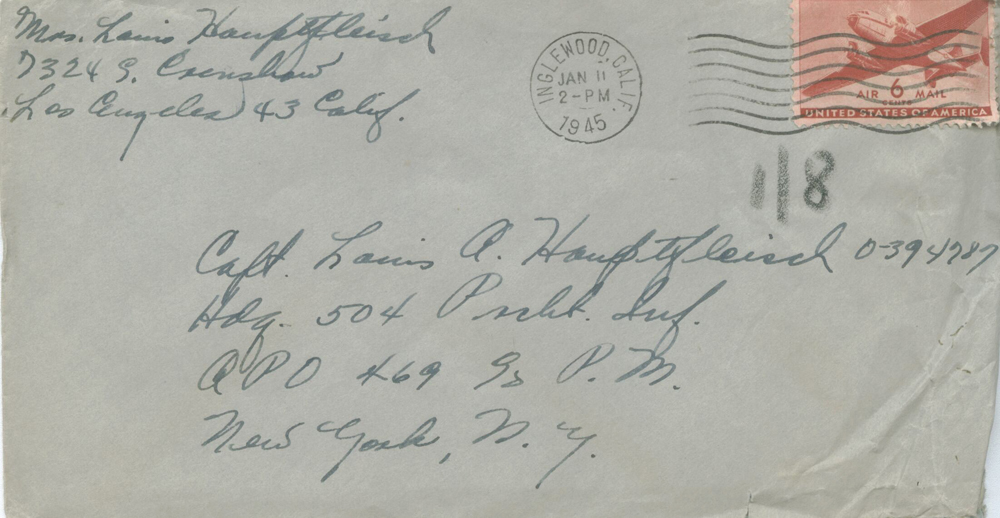 Mrs. Louis Hauptfleisch
7324 S. Crenshaw
Los Angeles 43 Calif.
INGLEWOOD, CALIF.
JAN 11
2-PM
1945
AIR 6 MAIL
CENTS
UNITED STATES OF AMERICA
118
Capt. Louis A. Hauptfleisch O-394787
Hdq. 504 Prcht. Inf.
APO 469 % P.M.
New York, N.Y.